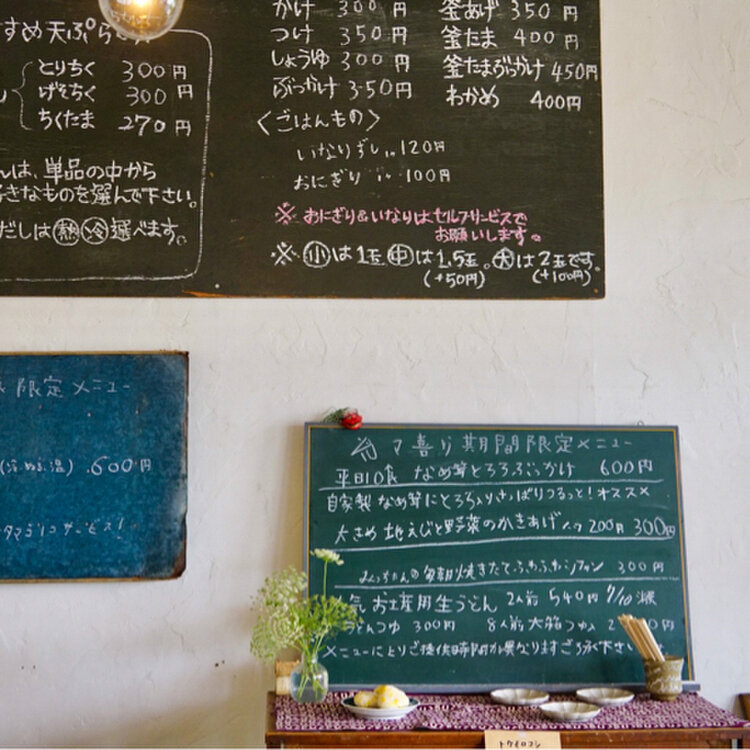 すめ天ぷら
とりちく 300円
げそちく 300円
ちくたま 270円
んは、単品の中から
好きなものを選んで下さい。
だしは熱冷選べます。
かけ 300円
つけ 350円
しょうゆ 300円
ぶっかけ 350円
釜あげ 350円
釜たま 400円
釜たまぶっかけ 450円
わかめ 400円
〈ごはんもの〉
いなりずし 120円
おにぎり 100円
※ おにぎり&いなりはセルフサービスで
お願いします。
※ 小は1玉 中は1.5玉。大は2玉です。
(+50円) (+100円)
限定メニュー
600円
期間限定メニュー
平日10食 なめ茸とろろぶっかけ 600円
自家製 なめ茸にとろろ さっぱりつるっと!オススメ
大きめ 地えびと野菜のかきあげ 200円 300円
毎朝焼きたてふわふわシフォン 300円
お土産用生うどん 2人前 540円
300円 8人前
メニューにより